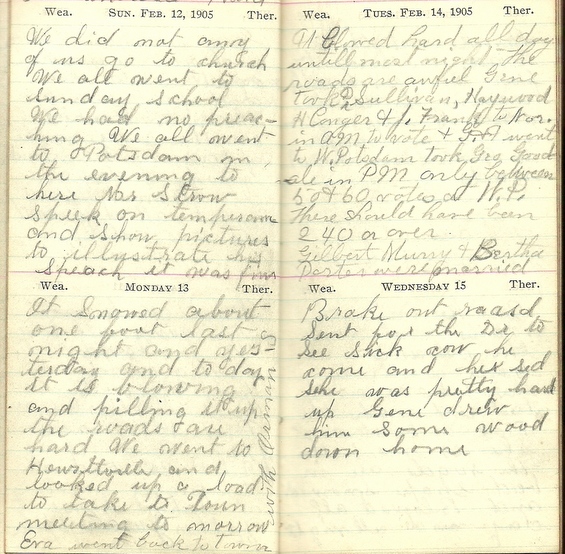 Wea. SUN. FEB. 12, 1905 Ther.
We did not anny
of us go to church
We all went to
Sunday School
We had no preac-
hing We all went
to Potsdam in
the evening to
here Mr Strow
speek on temperanc
and show pictures
to illustrate his
Speach it was fine
Wea. MONDAY 13 Ther.
It Snowed about
one foot last
night and yes-
terday and to day
it is blowing
and pilling it up
the roads are
hard We went to
Hewittville and
looked up a load
to take to Town
meeting to morrow
Eva went back to town
with
Wea. TUES. FEB. 14, 1905 Ther.
It Blowed hard all day
untill most night The
roads are awful Gene
took D Sullivan, Haywood
H Conger & J. France to Nor.
in A.M. to vote & went
to W. Potsdam took Geo Good
ale in P.M. only between
50 & 60 votes at W.P.
There should have been
240 or over
Gilbert Murry & Bertha
Porter were married
Wea. WEDNESDAY 15 Ther.
Brake out roasd
Sent for the Dr to
See Sick cow he
come and he sed
She was pretty hard
up Gene drew
him Some wood
down home